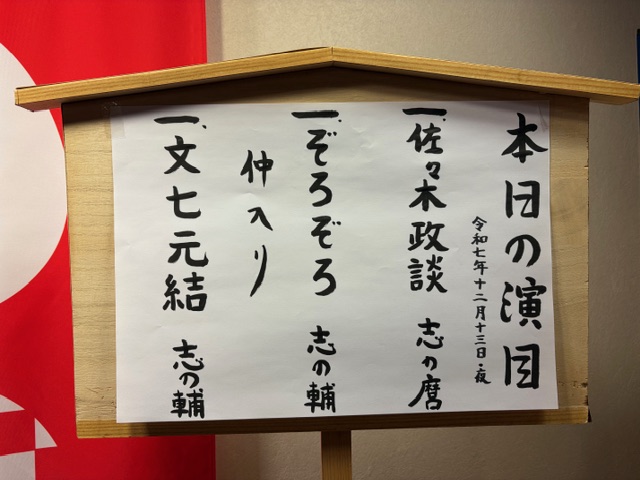 本日の演目
令和七年十二月十三日・夜
一、佐々木政談 志の麿
一、ぞろぞろ 志の輔
仲入り
一、文七元結 志の輔